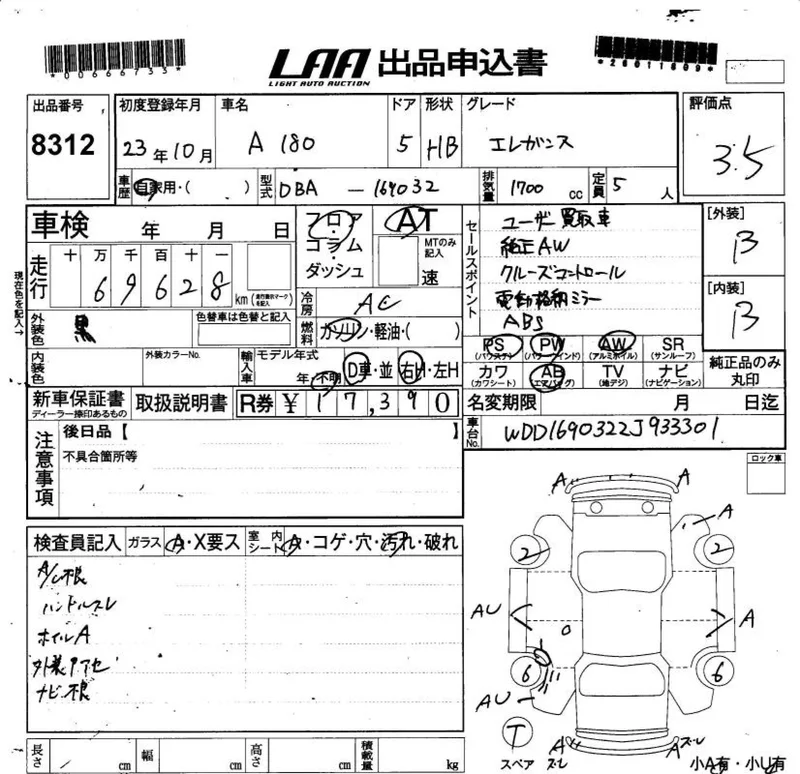 *00666733*
*26011609*
LAA 出品申込書
LIGHT AUTO AUCTION
出品番号
8312
初度登録年月
23年10月
車名
A 180
ドア
5
形状
HB
グレード
エレガンス
評価点
3.5
車歴
自家用・( )
型式
DBA - 169032
排気量
1700 cc
定員
5人
車検 年 月 日
フロア・コラム・ダッシュ
AT
MTのみ記入
速
セールスポイント
ユーザー買取車
純正AW
クルーズコントロール
電動格納ミラー
ABS
[外装]
B
[内装]
B
現在色を記入→
走行
十万千百十一
69628 km
(走行疑示マークを記入)
冷房
AC
外装色
黒
色替車は色替と記入
燃料
ガソリン・軽油・( )
PS (パワステ)
PW (パワーウインド)
AW (アルミホイル)
SR (サンルーフ)
カワ (カワシート)
AB (エアバッグ)
TV (地デジ)
ナビ (ナビゲーション)
純正品のみ丸印
内装色
外装カラーNo.
輸入車
モデル年式
年・不明
D車・並
右H・左H
新車保証書
ディーラー捺印あるもの
取扱説明書
R券 ¥17,390
名変期限 月 日迄
車台No.
WDD1690322J933301
注意事項
後日品【 】
不具合箇所等
ロック車
検査員記入
ガラス
A・X要ス
室内シート
A・コゲ・穴・汚れ・破れ
A/C根
ハンドルスレ
ホイルA
ナビ根
A
A
A
2
2
AU
A
6
6
AU
T
スペア
A
ズレ
A
ズレ
小A有・小U有
長さ cm
幅 cm
高さ cm
積載量 kg